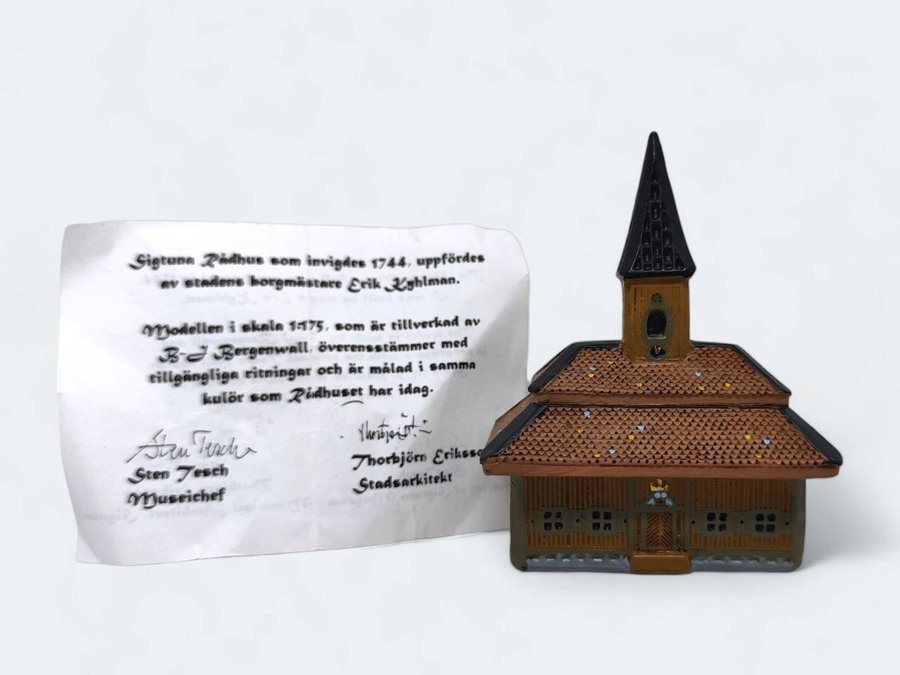 Sigtuna Rådhus som invigdes 1744, uppfördes
av stadens borgmästare Erik Kyhlman.
Modellen i skala 1:175, som är tillverkad av
B-J Bergenwall, överensstämmer med
tillgängliga ritningar och är målad i samma
kulör som Rådhuset har idag.
Sten Tesch
Sten Tesch
Museichef
Thorbjörn Erikss
Stadsarkitekt